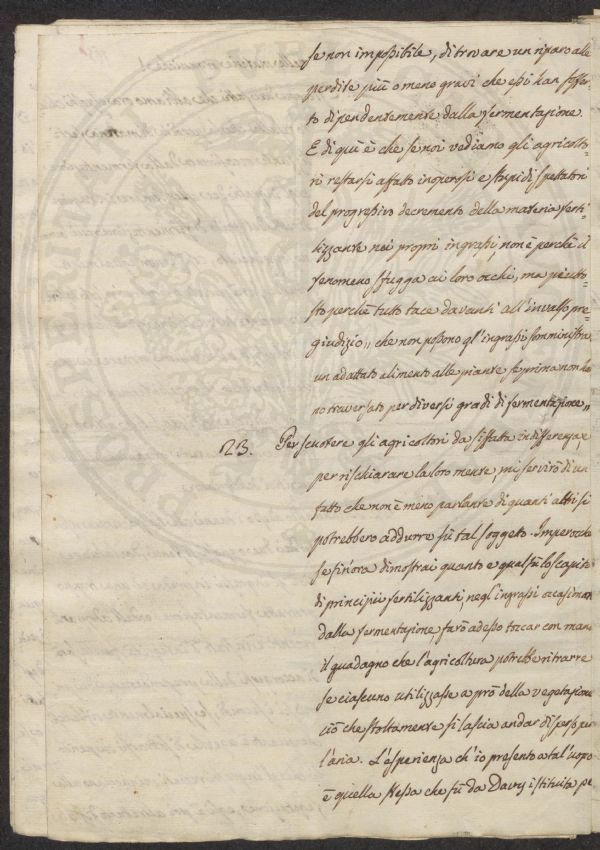 se non impossibile, di trovare un riparo alle
perdite più o meno gravi che essi han soffer=
to dipendentemente dalla fermentazione.
E di quì è che se noi vediamo gli agricolto=
ri restarsi affatto inoperosi e stupidi spettatori
del progressivo decremento della materia ferti=
lizzante nei propri ingrassi, non è perchè il
fenomeno sfugga ai loro occhi, ma piutto=
sto perchè tutto tace davanti all'invalso pre=
giudizio,, che non possono gl'ingrassi somministra
un adattato alimento alle piante se prima non ha
no traversato per diversi gradi di fermentazione,,
23. Per scuotere gli agricoltori da siffatta indifferenza, e
per rischiarare la loro mente, mi servirò di un
fatto che non è meno parlante di quanti altri si
potrebbero addurre sù tal soggetto. Imperocchè
se fin'ora dimostrai quanto e qual fù lo scapito
di principii fertilizzanti, negl'ingrassi occasionat
dalla fermentazione, farò adesso toccar con mano
il guadagno che l'agricoltura potrebbe ritrarre
se ciascuno utilizzasse a prò della vegetazione
ciò che stoltamente si lascia andar disperso per
l'aria. L'esperienza ch'io presento a tal'uopo
è quella stessa che fù da Davy istituita pe